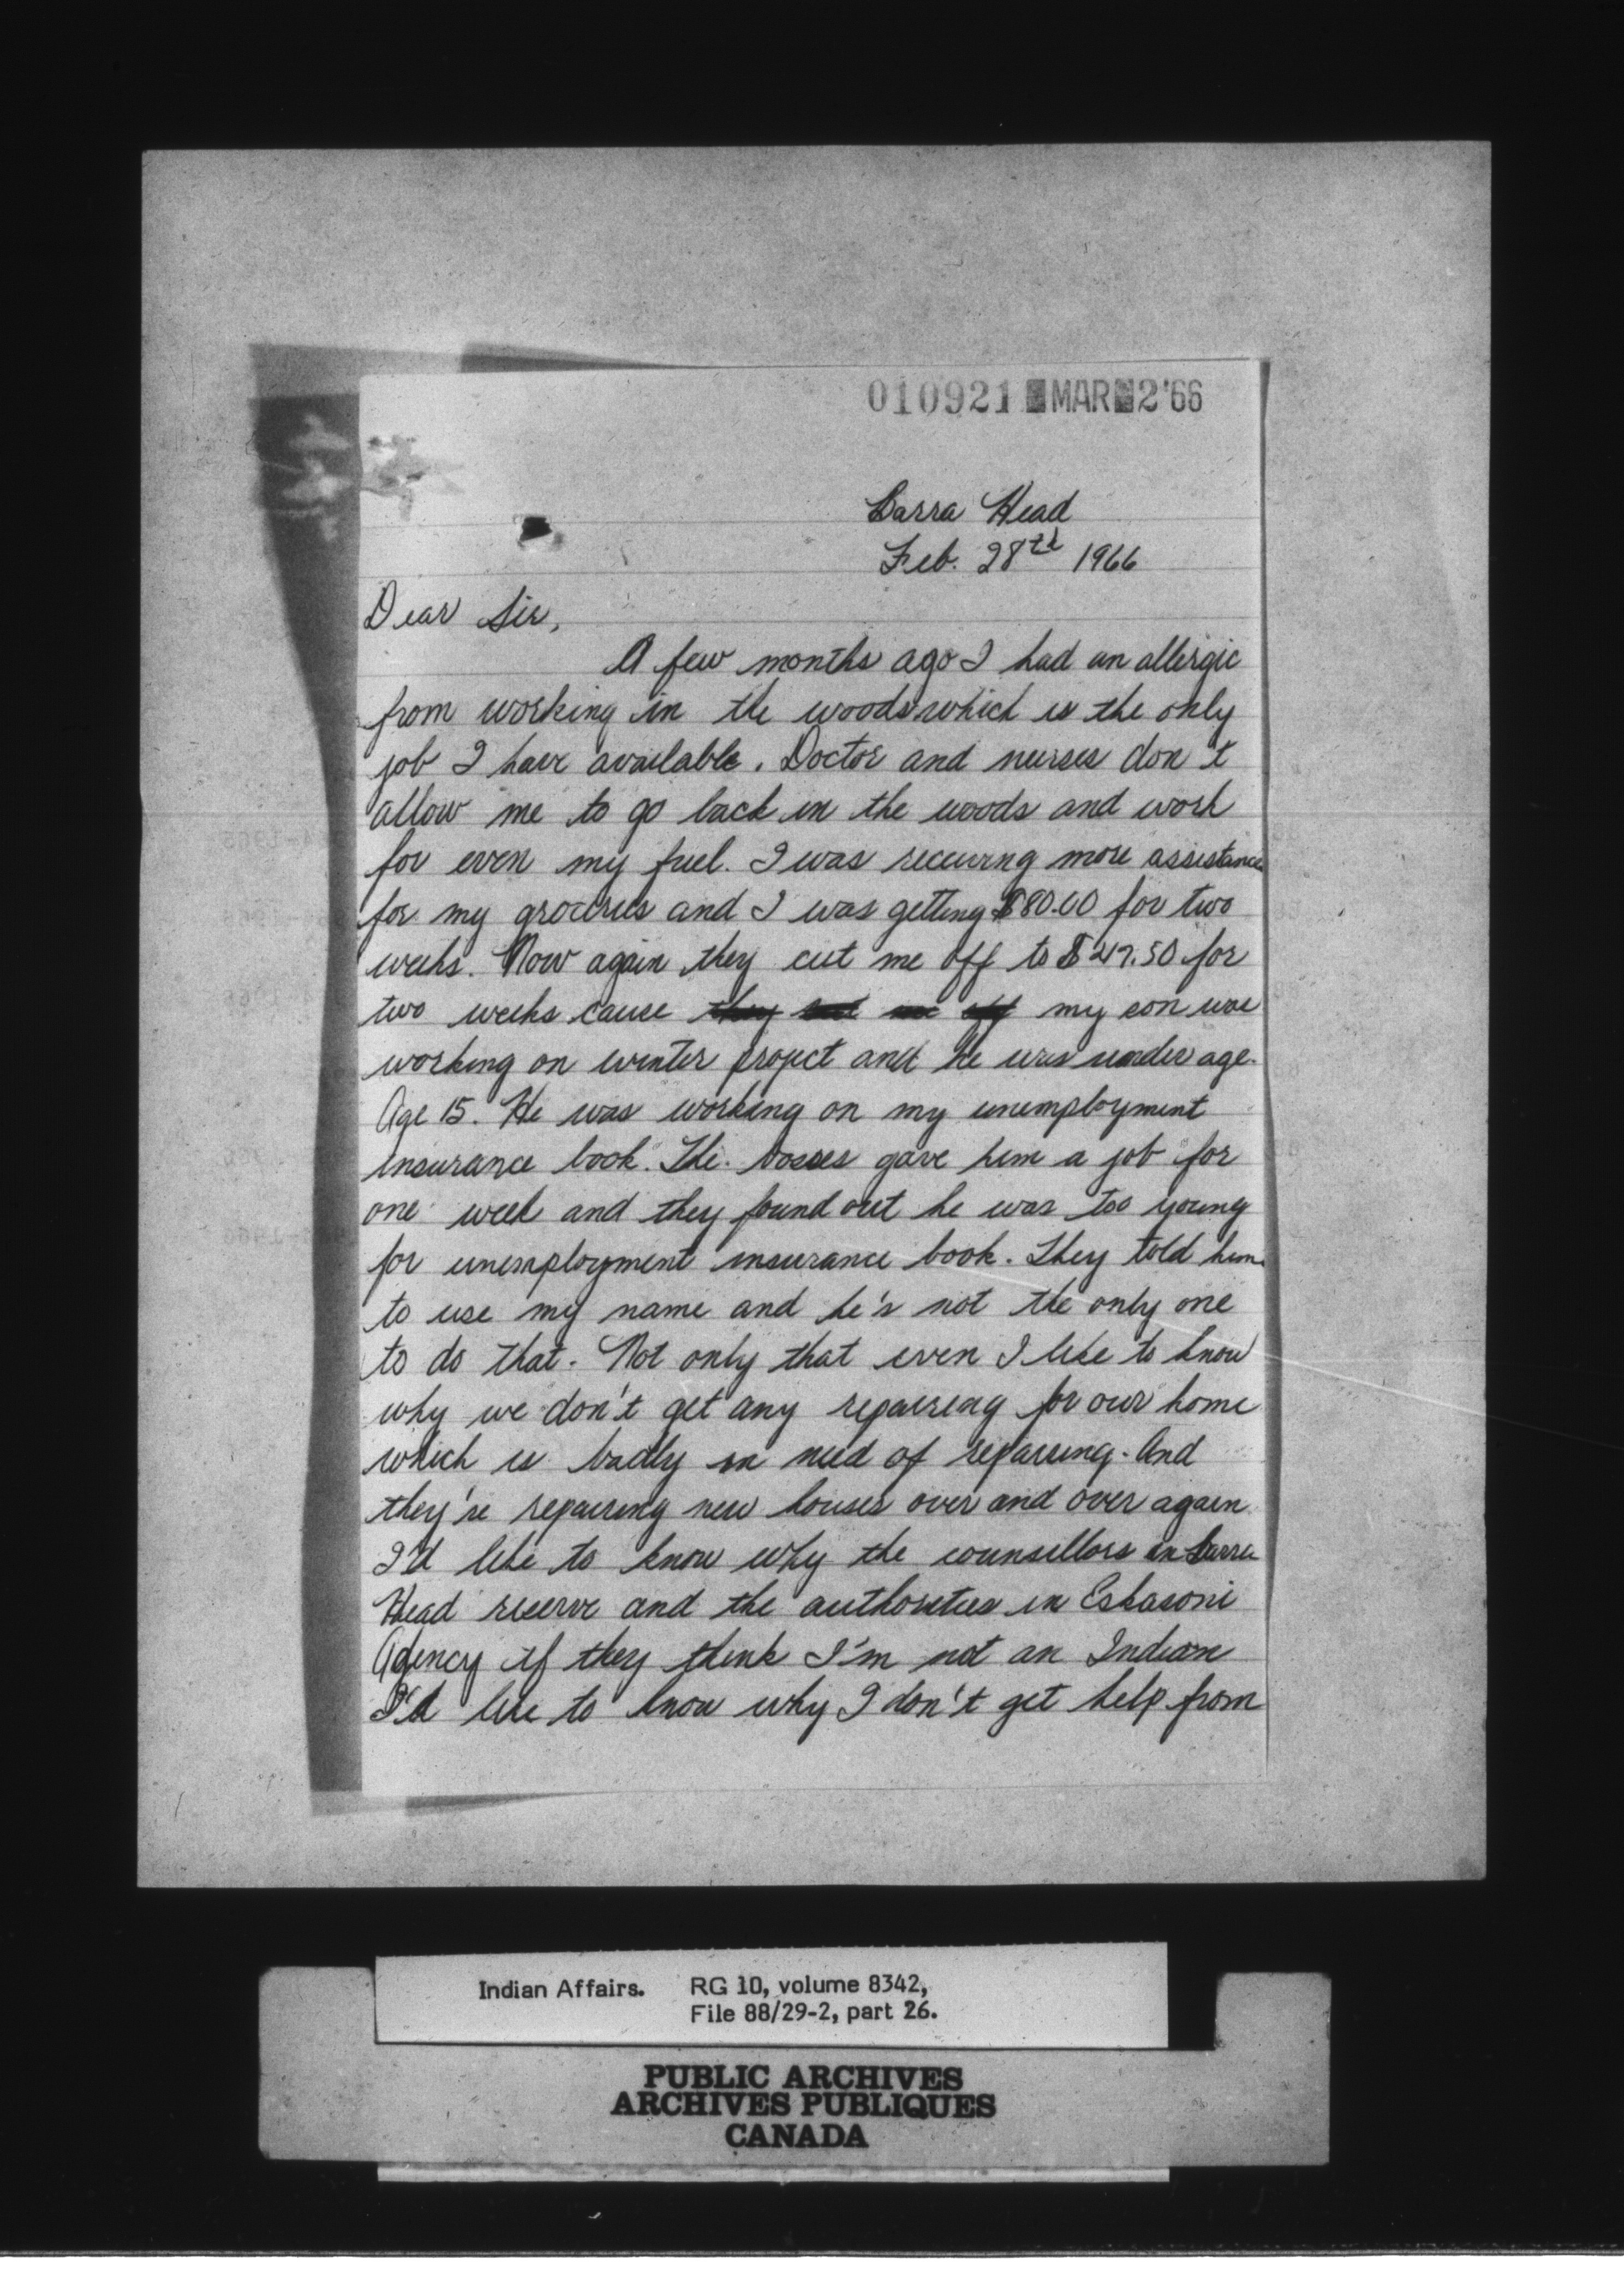 010921 MAR 2'66
Barra Head
Feb. 28th 1966
Dear Sir,
A few months ago I had an allergic
from working in the woods which is the only
job I have available. Doctor and nurses don't
allow me to go back in the woods and work
for even my fuel. I was receiving more assistance
for my groceries and I was getting $80.00 for two
weeks. Now again they cut me off to $47.50 for
two weeks cause they cut me off my son was
working on winter project and he was under age.
Age 15. He was working on my unemployment
insurance book. The bosses gave him a job for
one week and they found out he was too young
for unemployment insurance book. They told him
to use my name and he's not the only one
to do that. Not only that even I like to know
why we don't get any repairing for our home
which is badly in need of repairing. And
they're repairing new houses over and over again
I'd like to know why the counsellors in Barra
Head reserve and the authorities in Eskasoni
Agency if they think I'm not an Indian
I'd like to know why I don't get help from
Indian Affairs. RG 10, volume 8342,
File 88/29-2, part 26.
PUBLIC ARCHIVES
ARCHIVES PUBLIQUES
CANADA